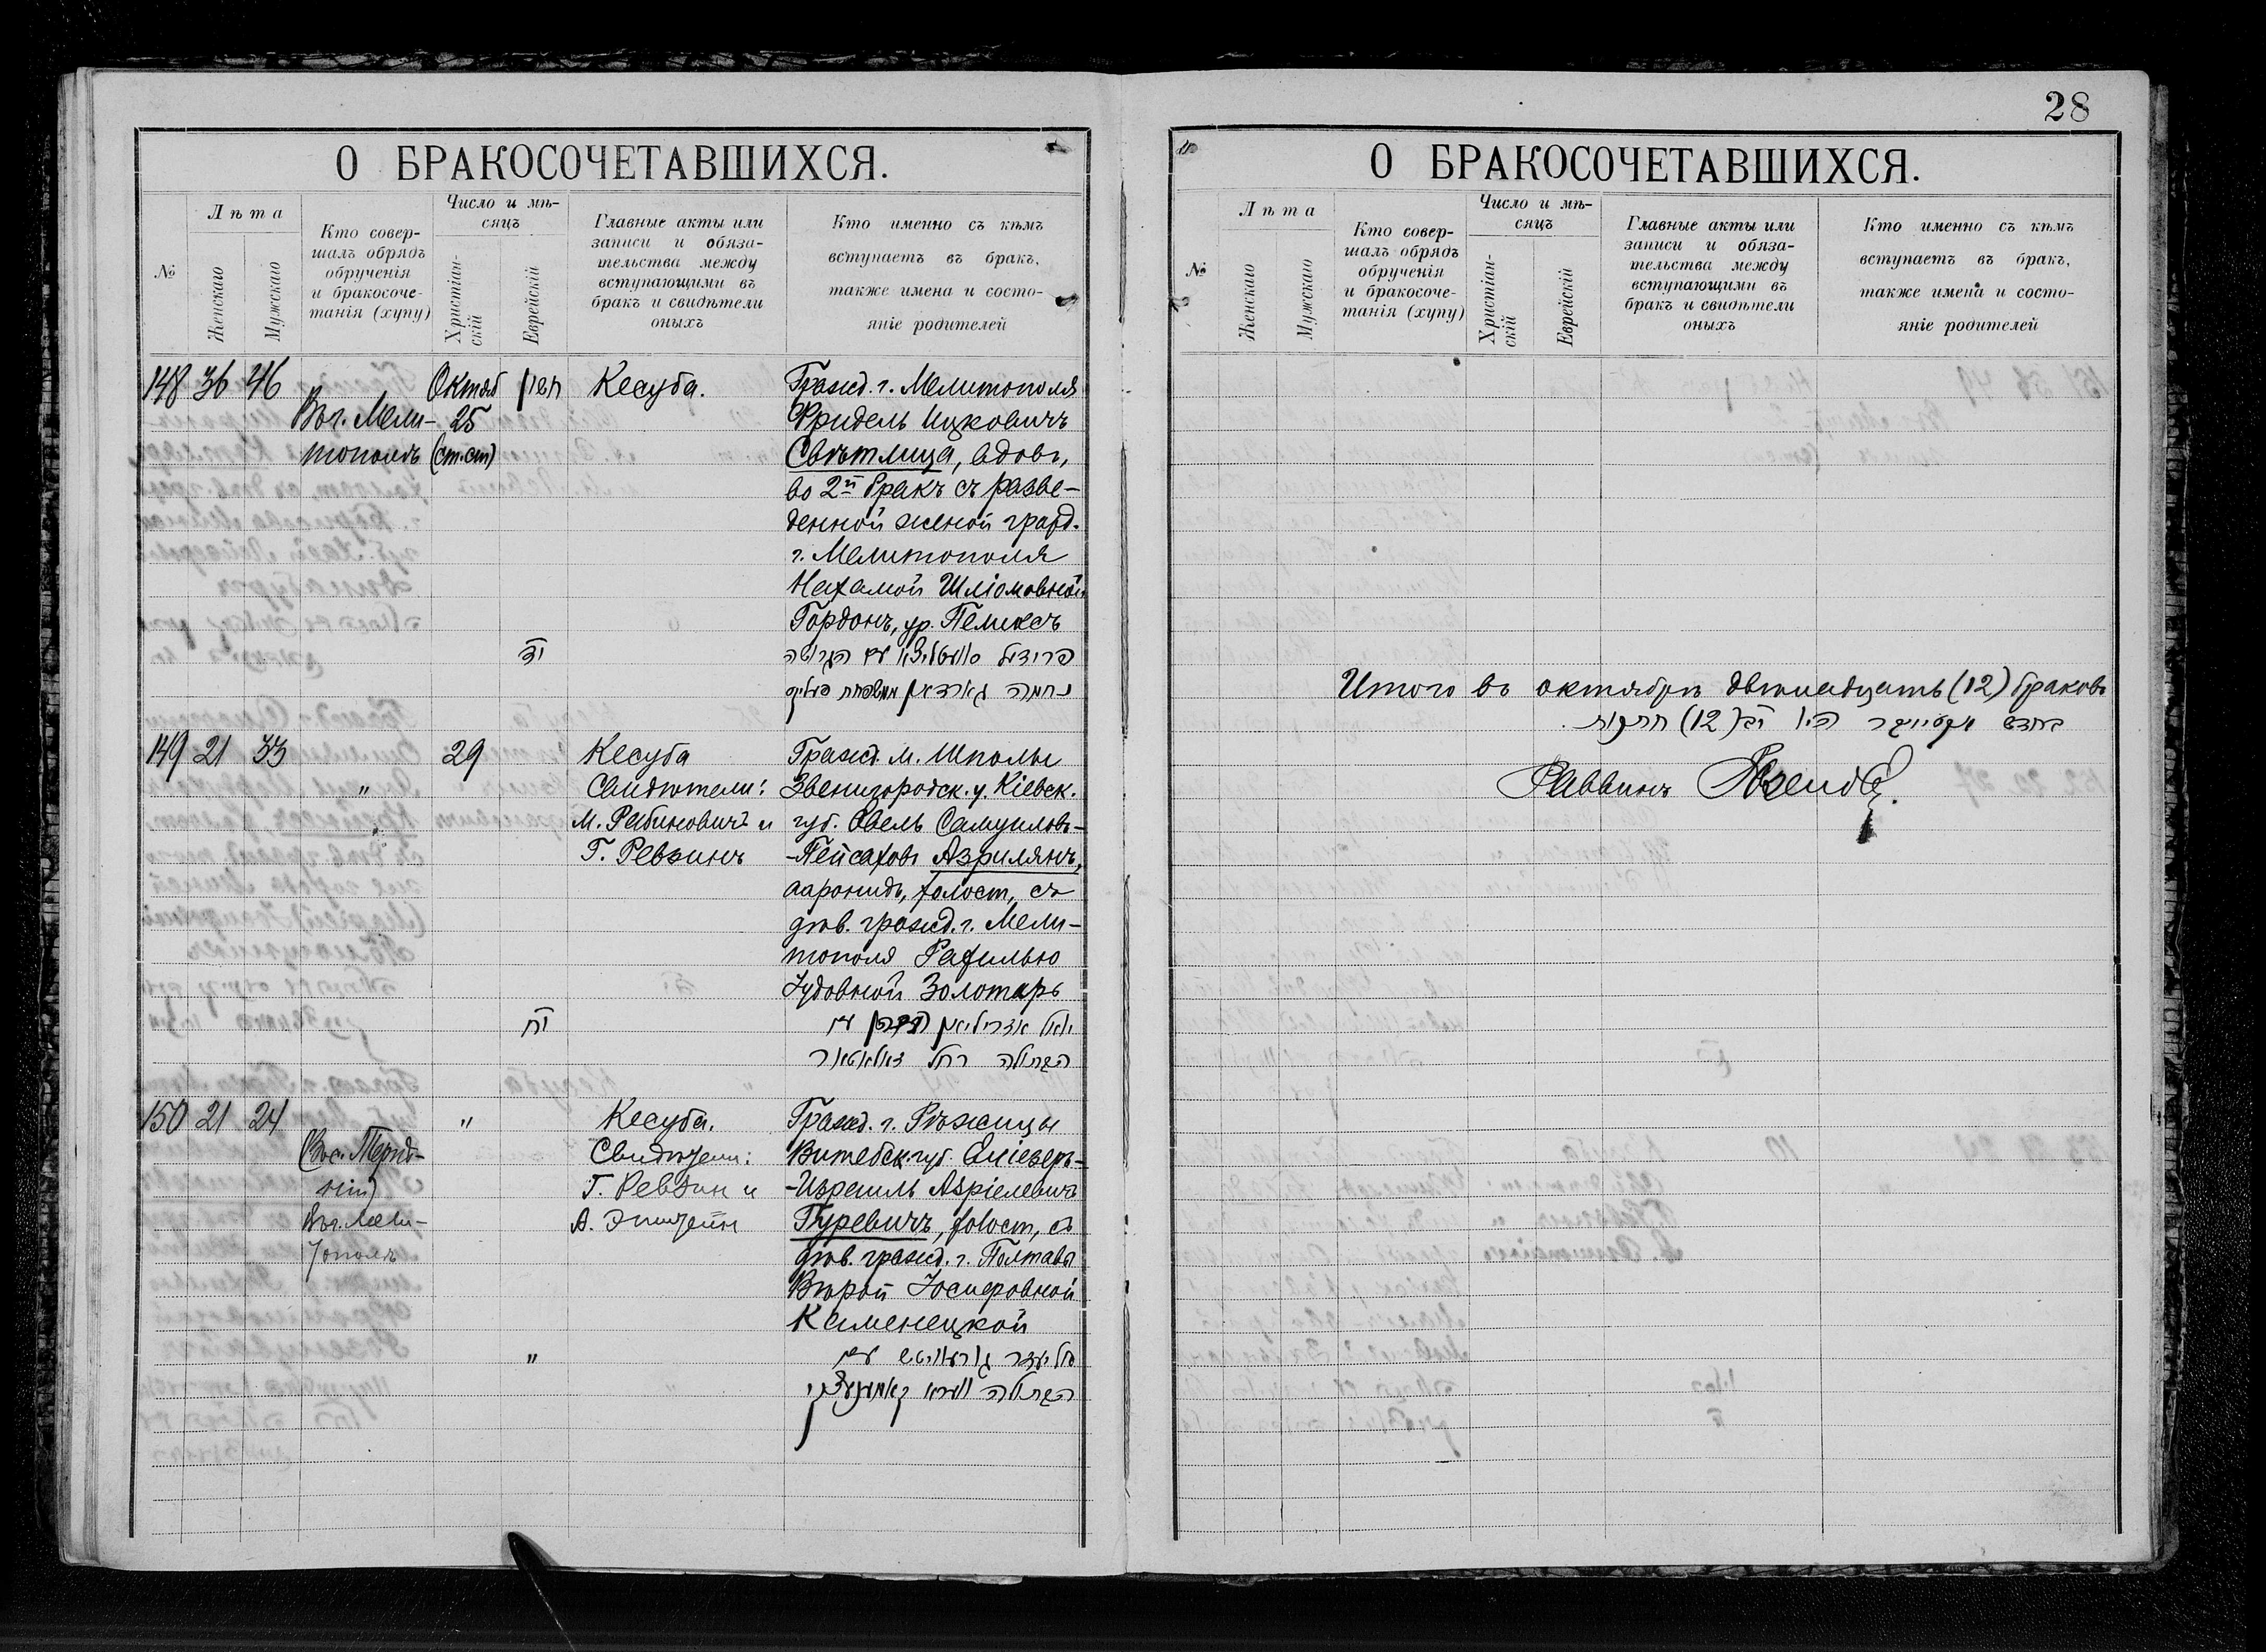 28
О БРАКОСОЧЕТАВШИХСЯ.
№
Лѣта
Женскаго
Мужскаго
Кто совер-
шалъ обрядъ
обрученія
и бракосоче-
танія (хупу)
Число и мѣ-
сяцъ
Христіан-
скій
Еврейскій
Главные акты или
записи и обяза-
тельства между
вступающими въ
бракъ и свидѣтели
оныхъ
Кто именно съ кѣмъ
вступаетъ въ бракъ,
также имена и состо-
яніе родителей
148 36 46
Въ г. Мели-
тополѣ
Октяб
25
(ст. ст)
חשון
יט
Кесуба.
Гражд. г. Мелитополя
Фридель Ицковичъ
Свѣтлица, вдов.,
во 2й бракъ съ разве-
денной женой гражд.
г. Мелитополя
Нехамой Шліомовной
Гордонъ, ур.
149 21 33
"
29
Кесуба
Свидѣтели:
М. Рабиновичъ и
Г. Ревзинъ
Гражд. м. Шполы
Звенигородск. у. Кіевск.
губ. Овель Самуиловъ-
-Пейсаховъ Азрилянъ,
ааронидъ, холост., съ
дѣв. гражд. г. Мели-
тополя Рахилью
Іудовной Золотарь
הבתולה רחל זאלאטאר
150 21 24
Въ г. Мели-
тополѣ
"
"
Кесуба.
Свидѣтели:
Г. Ревзин и
А. Эпштейн
Гражд. г. Рѣжицы
Витебск. губ. Еліезеръ-
-Израиль Азріелевичъ
Гуревичъ, холост., съ
дѣв. гражд. г. Полтавы
Вѣрой Іосифовной
Каменецкой
О БРАКОСОЧЕТАВШИХСЯ.
№
Лѣта
Женскаго
Мужскаго
Кто совер-
шалъ обрядъ
обрученія
и бракосоче-
танія (хупу)
Число и мѣ-
сяцъ
Христіан-
скій
Еврейскій
Главные акты или
записи и обяза-
тельства между
вступающими въ
бракъ и свидѣтели
оныхъ
Кто именно съ кѣмъ
вступаетъ въ бракъ,
также имена и состо-
яніе родителей
Итого въ октябрѣ двѣнадцать (12) браковъ
(12)
Раввинъ